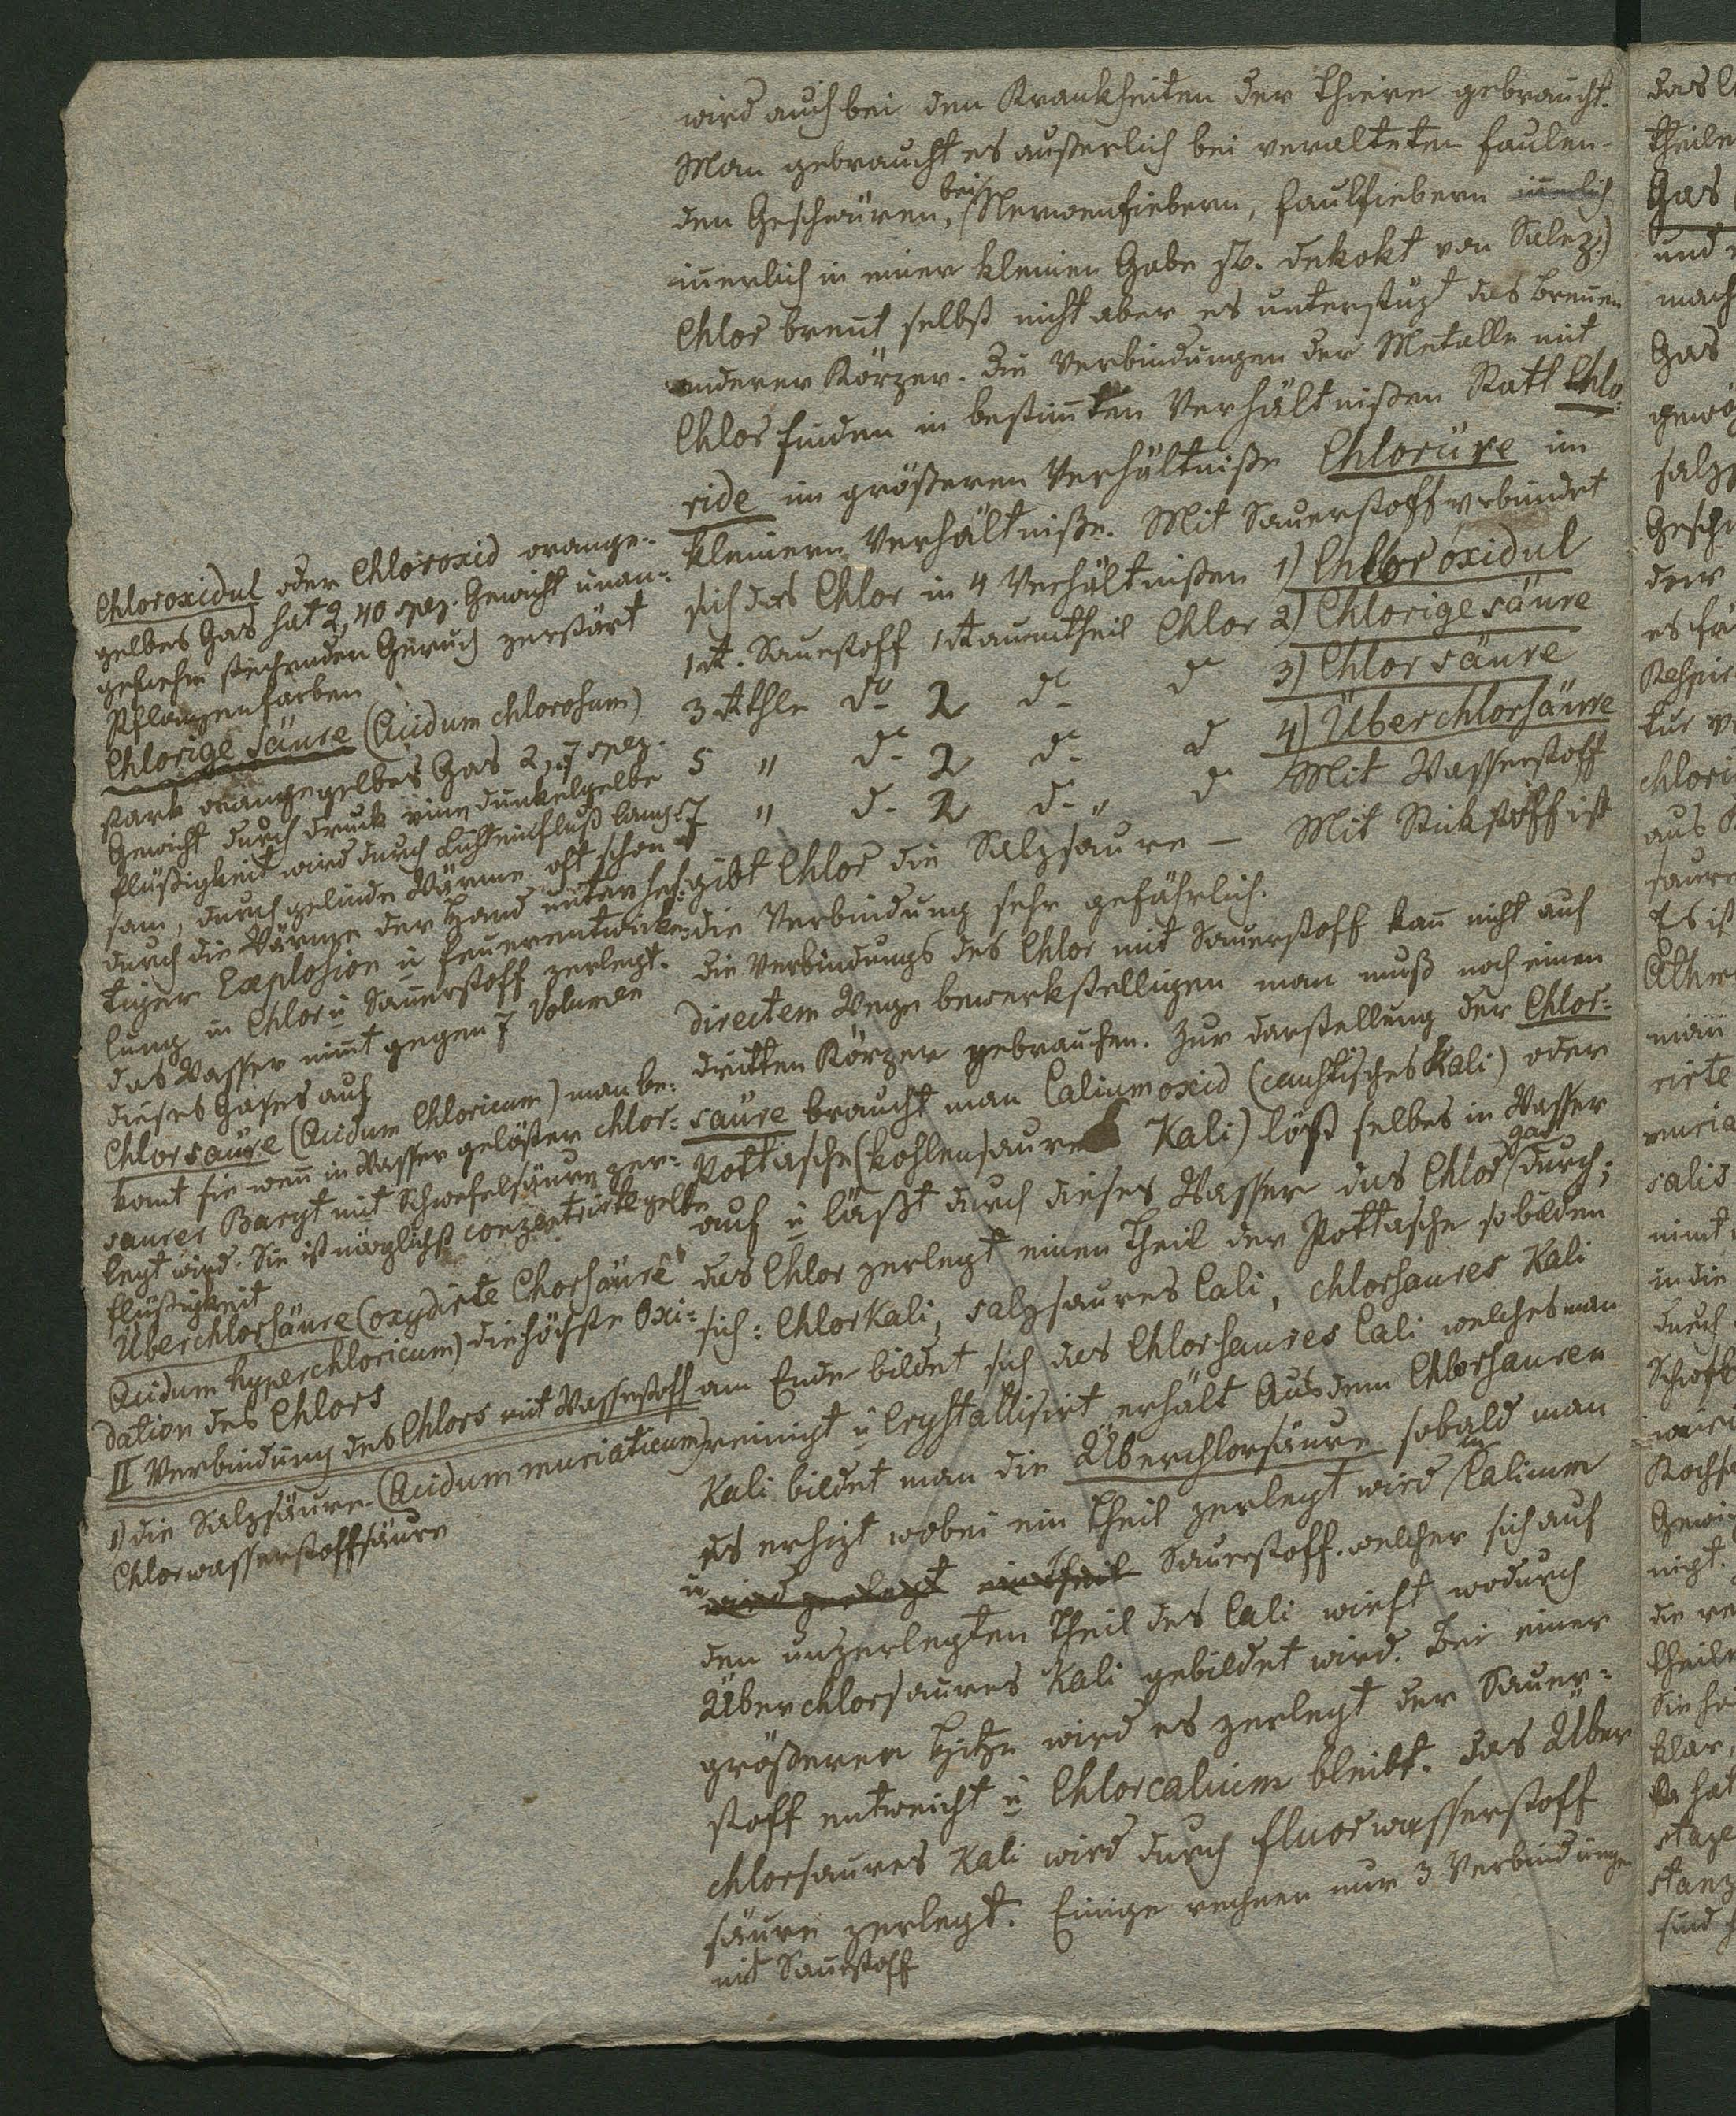 wird auch bei den Krankheiten der Thiere gebraucht.
Man gebraucht es außerlich bei veralteten faulen-
den Geschwüren, bei Nervenfiebern, Faulfiebern innerlich
innerlich in einer kleinen Gabe zb. Dekokt von Salez.)
Chlor brent selbst nicht aber es unterstüzt das brennen
anderer Körper. Die Verbindungen der Metalle mit
Chlor finden in bestimten Verhältnißen Statt Chlo-
ride im größeren Verhältniße Chlorüre im
kleinern Verhältniße. Mit Sauerstoff verbindet
sich das Chlor in 4 Verhältnißen 1) Chlor oxidul
1 At. Sauerstoff 1 Raumtheil Chlor 2) Chlorige säure
3 Athle do 2 do do 3) Chlor säure
5 " do 2 do do 4) Überchlorsäure
7 " do 2 do " do Mit Wasserstoff
gibt Chlor die Salzsäure — Mit Stickstoff ist
die Verbindung sehr gefährlich.
Die Verbindungs des Chlor mit Sauerstoff kann nicht auf
directem Wege bewerkstelligen man muß noch einen
dritten Körper gebrauchen. Zur Darstellung der Chlor-
säure braucht man Caliumoxid (caustisches Kali) oder
Pottasche (kohlensaures Kali) lößt selbes in Wasser
auf u läßt durch dieses Wasser das Chlor gas durch;
das Chlor zerlegt einen Theil der Pottasche so bilden
sich: ChlorKali, salzsaures Cali, chlorsaures Kali
am Ende bildet sich das Chlorsaures Cali welches man
reinigt u Crystallisirt erhält Aus dem Chlorsauren
Kali bildet man die Überchlorsäure sobald man
es erhizt wobei ein Theil zerlegt wird in Calium
u wird zerlegt ein Theil Sauerstoff. welcher sich auf
den unzerlegten Theil des Cali wirft wodurch
Überchlorsaures Kali gebildet wird. Bei einer
größeren Hitze wird es zerlegt der Sauer-
stoff entweicht u Chlorcalium bleibt. Das Über
chlorsaures Kali wird durch Fluorwasserstoff
säure zerlegt. Einige rechnen nur 3 Verbindungen
mit Sauerstoff
Chloroxidul oder Chloroxid orange-
gelbes Gas hat 2,40 spez. Gewicht unan-
genehm stechenden Geruch zerstört
Pflanzenfarben
Chlorige Säure (Acidum chlorosum)
stark orangegelbes Gas 2,7 spez.
Gewicht durch Druck eine dunkelgelbe
Flüßigkeit wird durch Lichteinfluß lang-
sam, durch gelinde Wärme oft schon
durch die Wärme der Hand unter hef-
tiger Explosion u Feuerentwicke-
lung in Chlor u Sauerstoff zerlegt.
das Wasser nimt gegen 7 Volumen
dieses Gases auf
Chlorsäure (Acidum Chloricum) man be-
komt sie wenn in Wasser gelöster chlor-
saurer Baryt mit Schwefelsäure zer-
legt wird. Sie ist möglichst conzentrirte gelbe
Flüßigkeit
Überchlorsäure (oxydirte Chorsäure
Acidum hyperchloricum) die höchste Oxi-
dation des Chlors
II Verbindung des Chlors mit Wasserstoff
1) die Salzsäure (Acidum muriaticum)
Chlorwasserstoffsäure
theile
Gas
und
mach
Gas
salz
der
chlori
aus
man
rirte
salis
nimt
in die
durch
theile
klar,